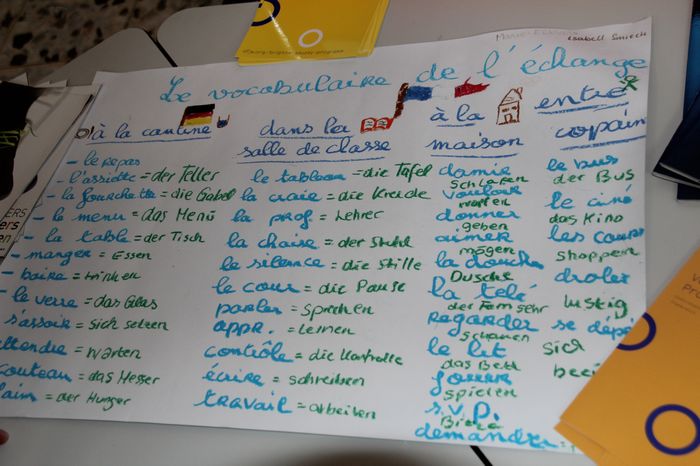 Isabell
Le vocabulaire de l'échange
à la cantine
- le repas
- l'assiette = der Teller
- la fourchette = die Gabel
- le menu = das Menü
- la table = der Tisch
- manger = Essen
- boire = trinken
- le verre = das Glas
s'assoir = sich setzen
attendre = warten
couteau = das Messer
faim = der Hunger
dans la
salle de classe
le tableau = die Tafel
la craie = die Kreide
la prof = Lehrer
la chaise = der Stuhl
le silence = die Stille
le cour = die Pause
parler = sprechen
appr. = lernen
contrôle = die Kontrolle
écrire = schreiben
travail = arbeiten
à la
maison
dormir
schlafen
vouloir
wollen
donner
geben
aimer
mögen
la douche
Dusche
la télé
der Fernsehr
regarder
schauen
le lit
das Bett
jouer
spielen
s.v.p.
Bitte
demander =
entre
copain
le bus
der Bus
le ciné
das Kino
les cours
shoppen
droler
lustig
se dépê
sich
beei